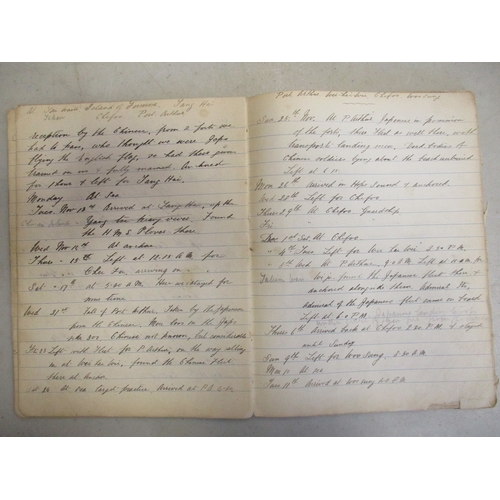 Island of Formosa. Tang
Chefoo Port Arthur
reception by the Chinese, from 2 forts we
had to pass, who thought we were Japs
flying the English flag, so had their guns
trained on us & fully manned. An hour
for stores & left for
Monday At Sea
Tues Nov 13th Arrived at
the H.M.S Plover there
Wed Nov 14th At anchor
Thurs 15th Left at 12.15 A.M. for
Che Foo, arriving on
Sat 17th at 5.30 A.M. Here we stayed for
some time
Wed 21st Fall of Port Arthur. Taken by the Japanese
from the Chinese. Men loss on the Japs
side 200, Chinese not known, but considerable
Left with Fleet for P. Arthur, on the way calling
in at Wei hei wei, found the Chinese Fleet
there at anchor
At sea Target practice, Arrived at P.A.
Port Arthur Wei hei wei Chefoo Woosung
Sun 25th Nov. At P. Arthur Japanese in possession
of the forts, their Fleet as well there, with
transports landing men, Dead bodies of
Chinese soldiers lying about the
Left at
Mon 26th Arrived in Hope Sound & anchored.
Wed 28th Left for Chefoo
Thurs 29th At Chefoo Guardship
Fri
Dec 1st Sat At Chefoo
4th Tues Left for Wei hei wei 2.30 P.M.
5th Wed At P. Arthur 9.0 A.M. Left at 11 A.M. for
from the Japanese Fleet there &
anchored alongside them. Admiral
Admiral of the Japanese Fleet came on board
Left at 6.0 P.M.
Thurs 6th Arrived back at Chefoo 2.30 P.M. & stayed
until Sunday
Sun 9th Left for Woo Sung. 2.30 A.M.
Mon 10 At sea
Tues 11th Arrived at Woo Sung 4.0 P.M.